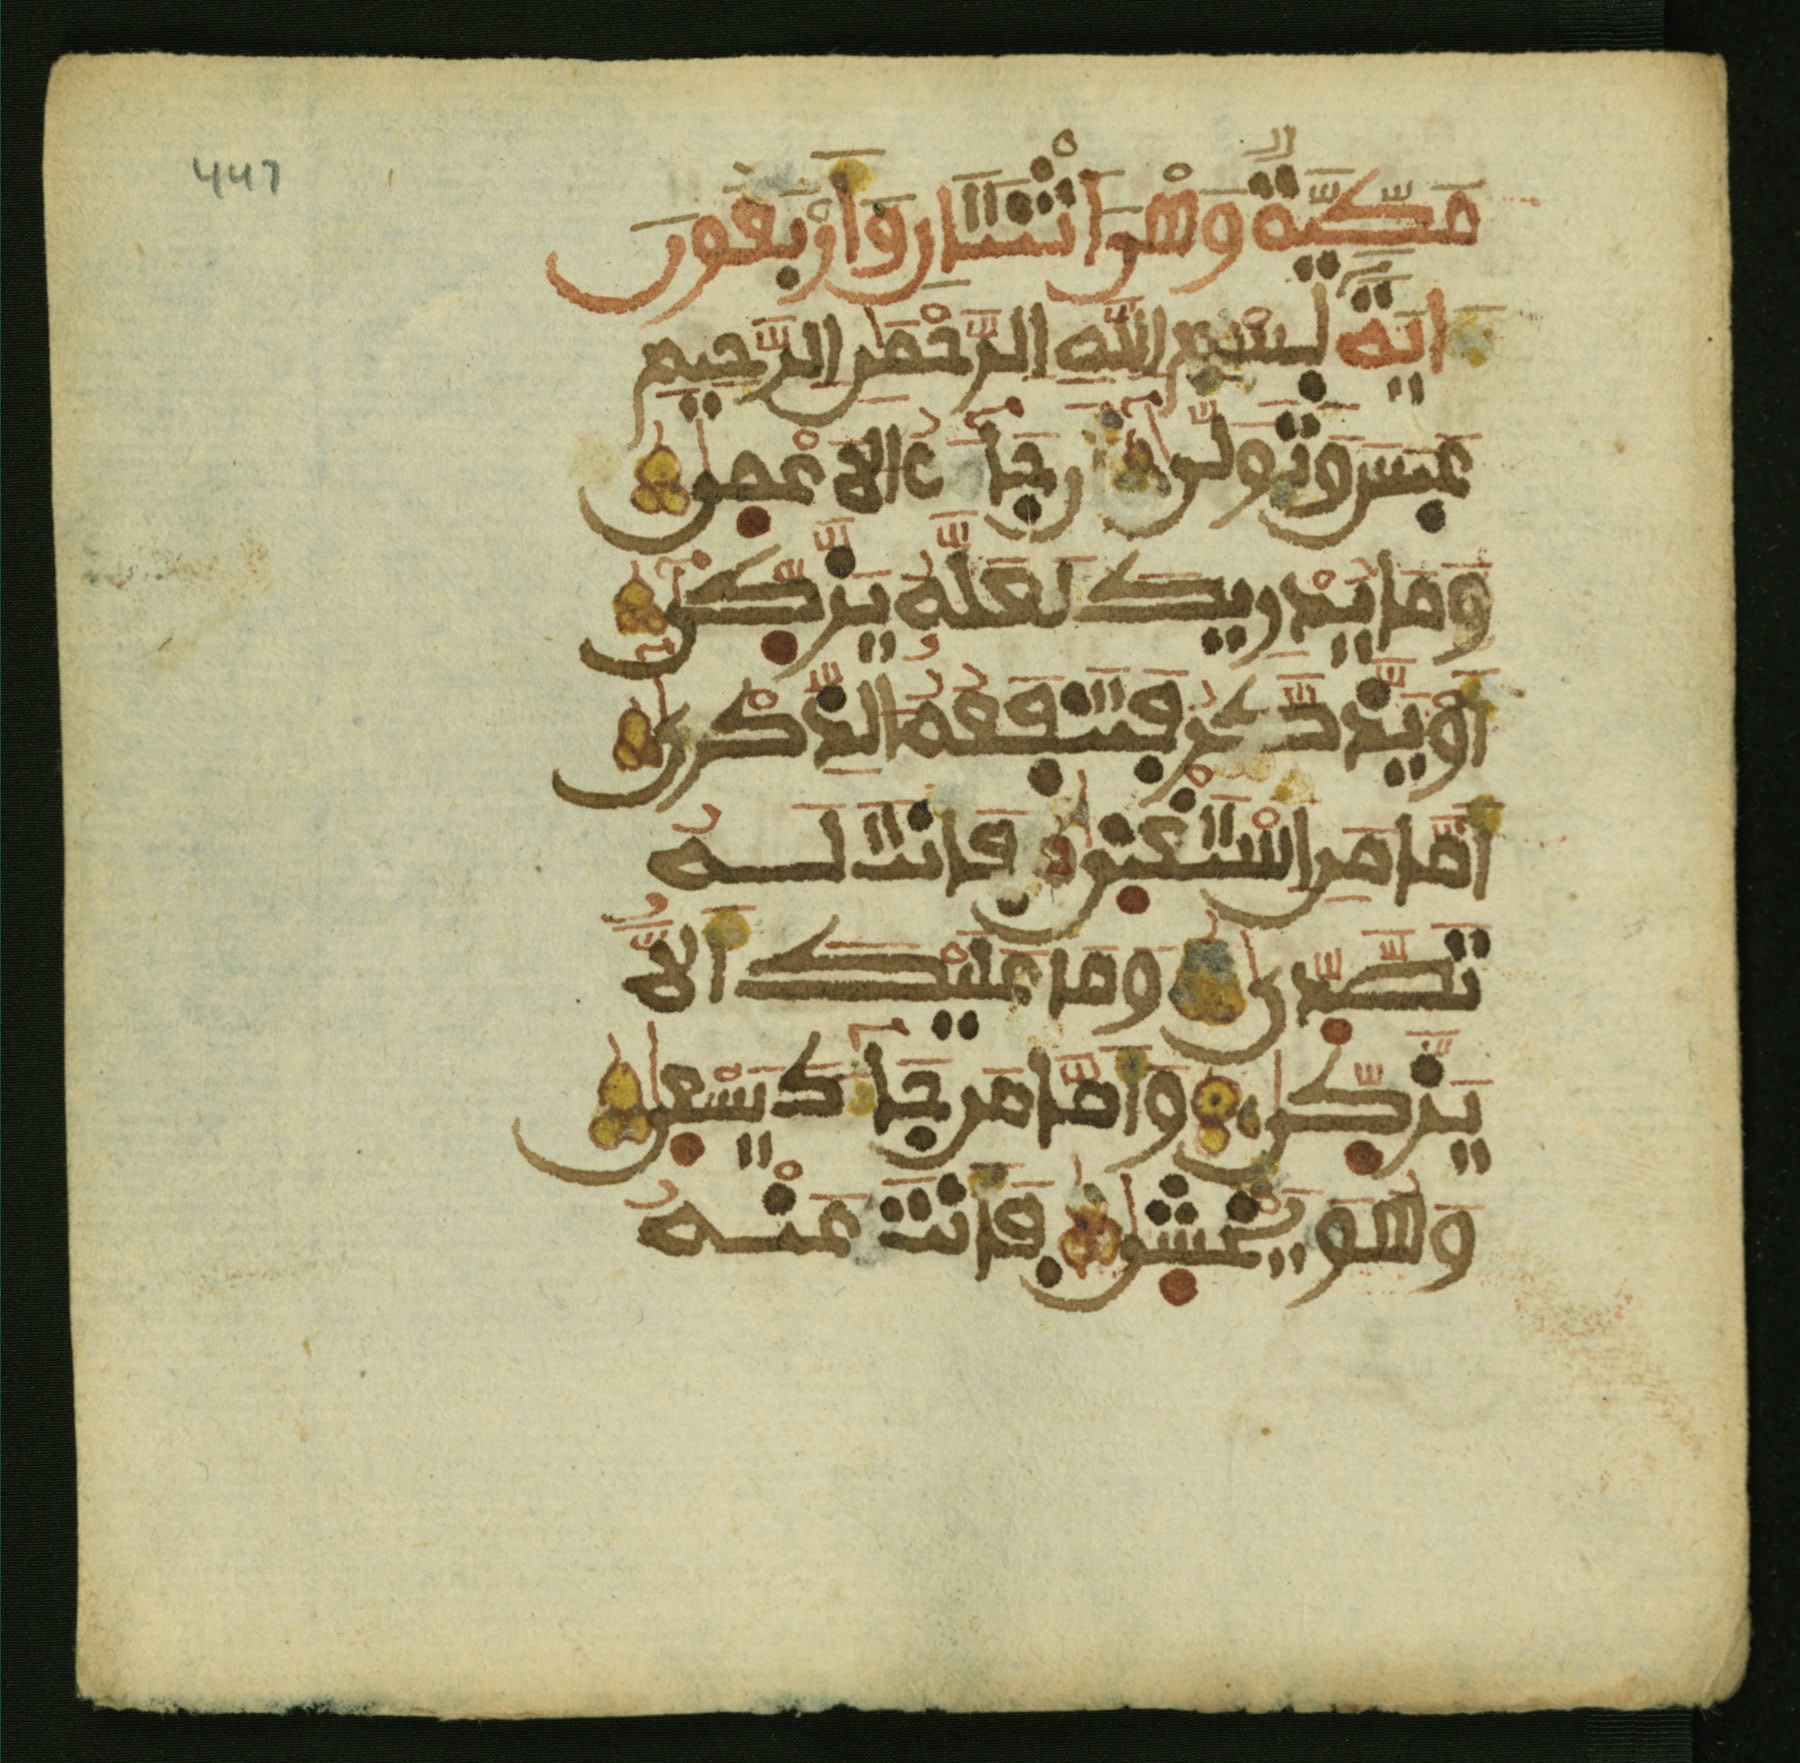 447
مَكِّيَّةٌ وَهْىَ اثْنَتَانِ وَأَرْبَعُونَ
ءَايَةً بِسْمِ اللَّهِ الرَّحْمَنِ الرَّحِيمِ
عَبَسَ وَتَوَلَّى أَن جَآءَهُ الَاعْمَى
وَمَا يُدْرِيكَ لَعَلَّهُ يَزَّكَّى
أَوْ يَذَّكَّرُ فَتَنفَعُهُ الذِّكْرَى
أَمَّا مَنِ اسْتَغْنَى فَأَنتَ لَهُ
تَصَّدَّى وَمَا عَلَيْكَ أَلَّا
يَزَّكَّى وَأَمَّا مَن جَآءَكَ يَسْعَى
وَهُوَ يَخْشَى فَأَنتَ عَنْهُ